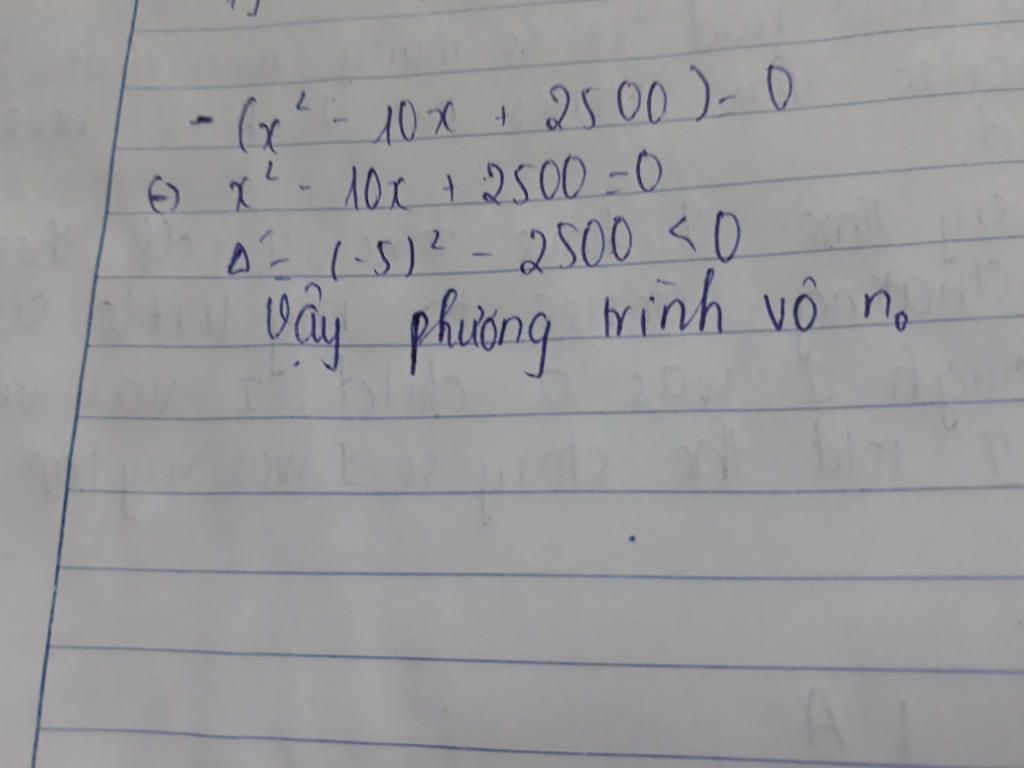 - (x² - 10x + 2500) = 0
⇔ x² - 10x + 2500 = 0
Δ' = (-5)² - 2500 < 0
Vậy phương trình vô n₀